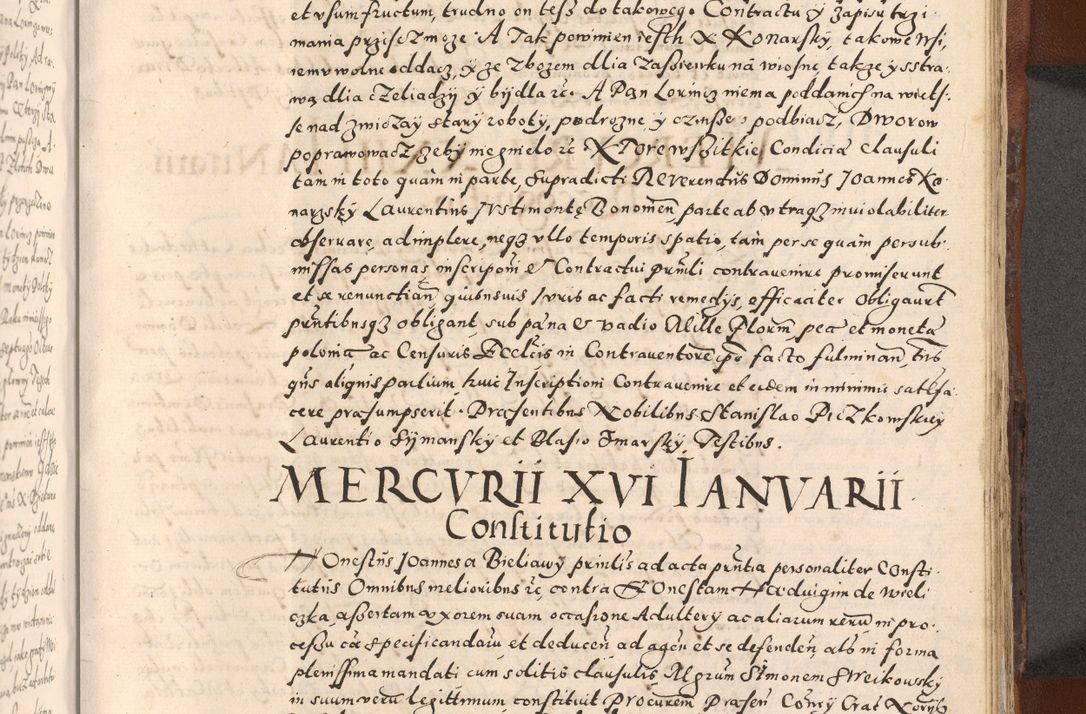 et vsum fructum, trudno on tesz do takowego Contractu ÿ Zapisu trzi
mania przisc zmoze A Tak powinien iesth X Konarskÿ, takowe wsi,
iemu wolne oddacz, ÿ ze zbozem dllia zassiewku nā wiosne, takze ÿ sstra
wą dllia czeliadzÿ ÿ bÿdla rc. A Pan Lormiz niema poddanich na wiels
sse nad zwiczaÿ starÿ robotÿ, podrozne ÿ czinsse podbiacz, Dworow
poprawowacz zebÿ niegnielo rc Xtore wszitkie Condicia Clausuli
tam in toto quam in parte, Supradicti Reverendus Dominus Joannes Ko
narzskÿ Laurentius Justimonte Bonomen parte ab vtraqz inuiolabiliter
obseruare, adimplere, neqz vllo temporis spatio, tam per se quam per sub
missas personas, inscriptioni et Contractui pruti contrauenire promiserunt
et se renunctian quibusuis Juris ac facti remedÿs, efficaciter obligarunt
pruntibusqz obligant, sub pæna et vadio Mille Florum pec et moneta
polonica ac Censuris Eccleis in Contrauentorem ipo facto fulminan, tris
qns aliqnis partium huic Inscriptioni Contrauenire et eidem in minimis satisfa
cere præsumpserit. Præsentibus Nobilibus Stanislao Piczkowskiÿ
Laurentio Sÿmanskÿ et Blasio Smarskÿ, Testibus.
MERCVRII XVI IANVARII.
Constitutio
Honestus Joannes a Bieliawÿ principalis ad acta pruntia personaliter Consti
tutus Omnibus melioribus rc contra Honestam Haduigim de Wieli
czka assertam vxorem suam occasione Adulterÿ ac aliarum rerum in pro
cessu cā specificandarum et deducen ad agen et se defenden als in forma
plenissima mandati cum solitis clausulis Magrum Simonem Streikowskÿ
in suum verum legittimum constituit Procurem Præsen Conrÿ Crac Notrÿs